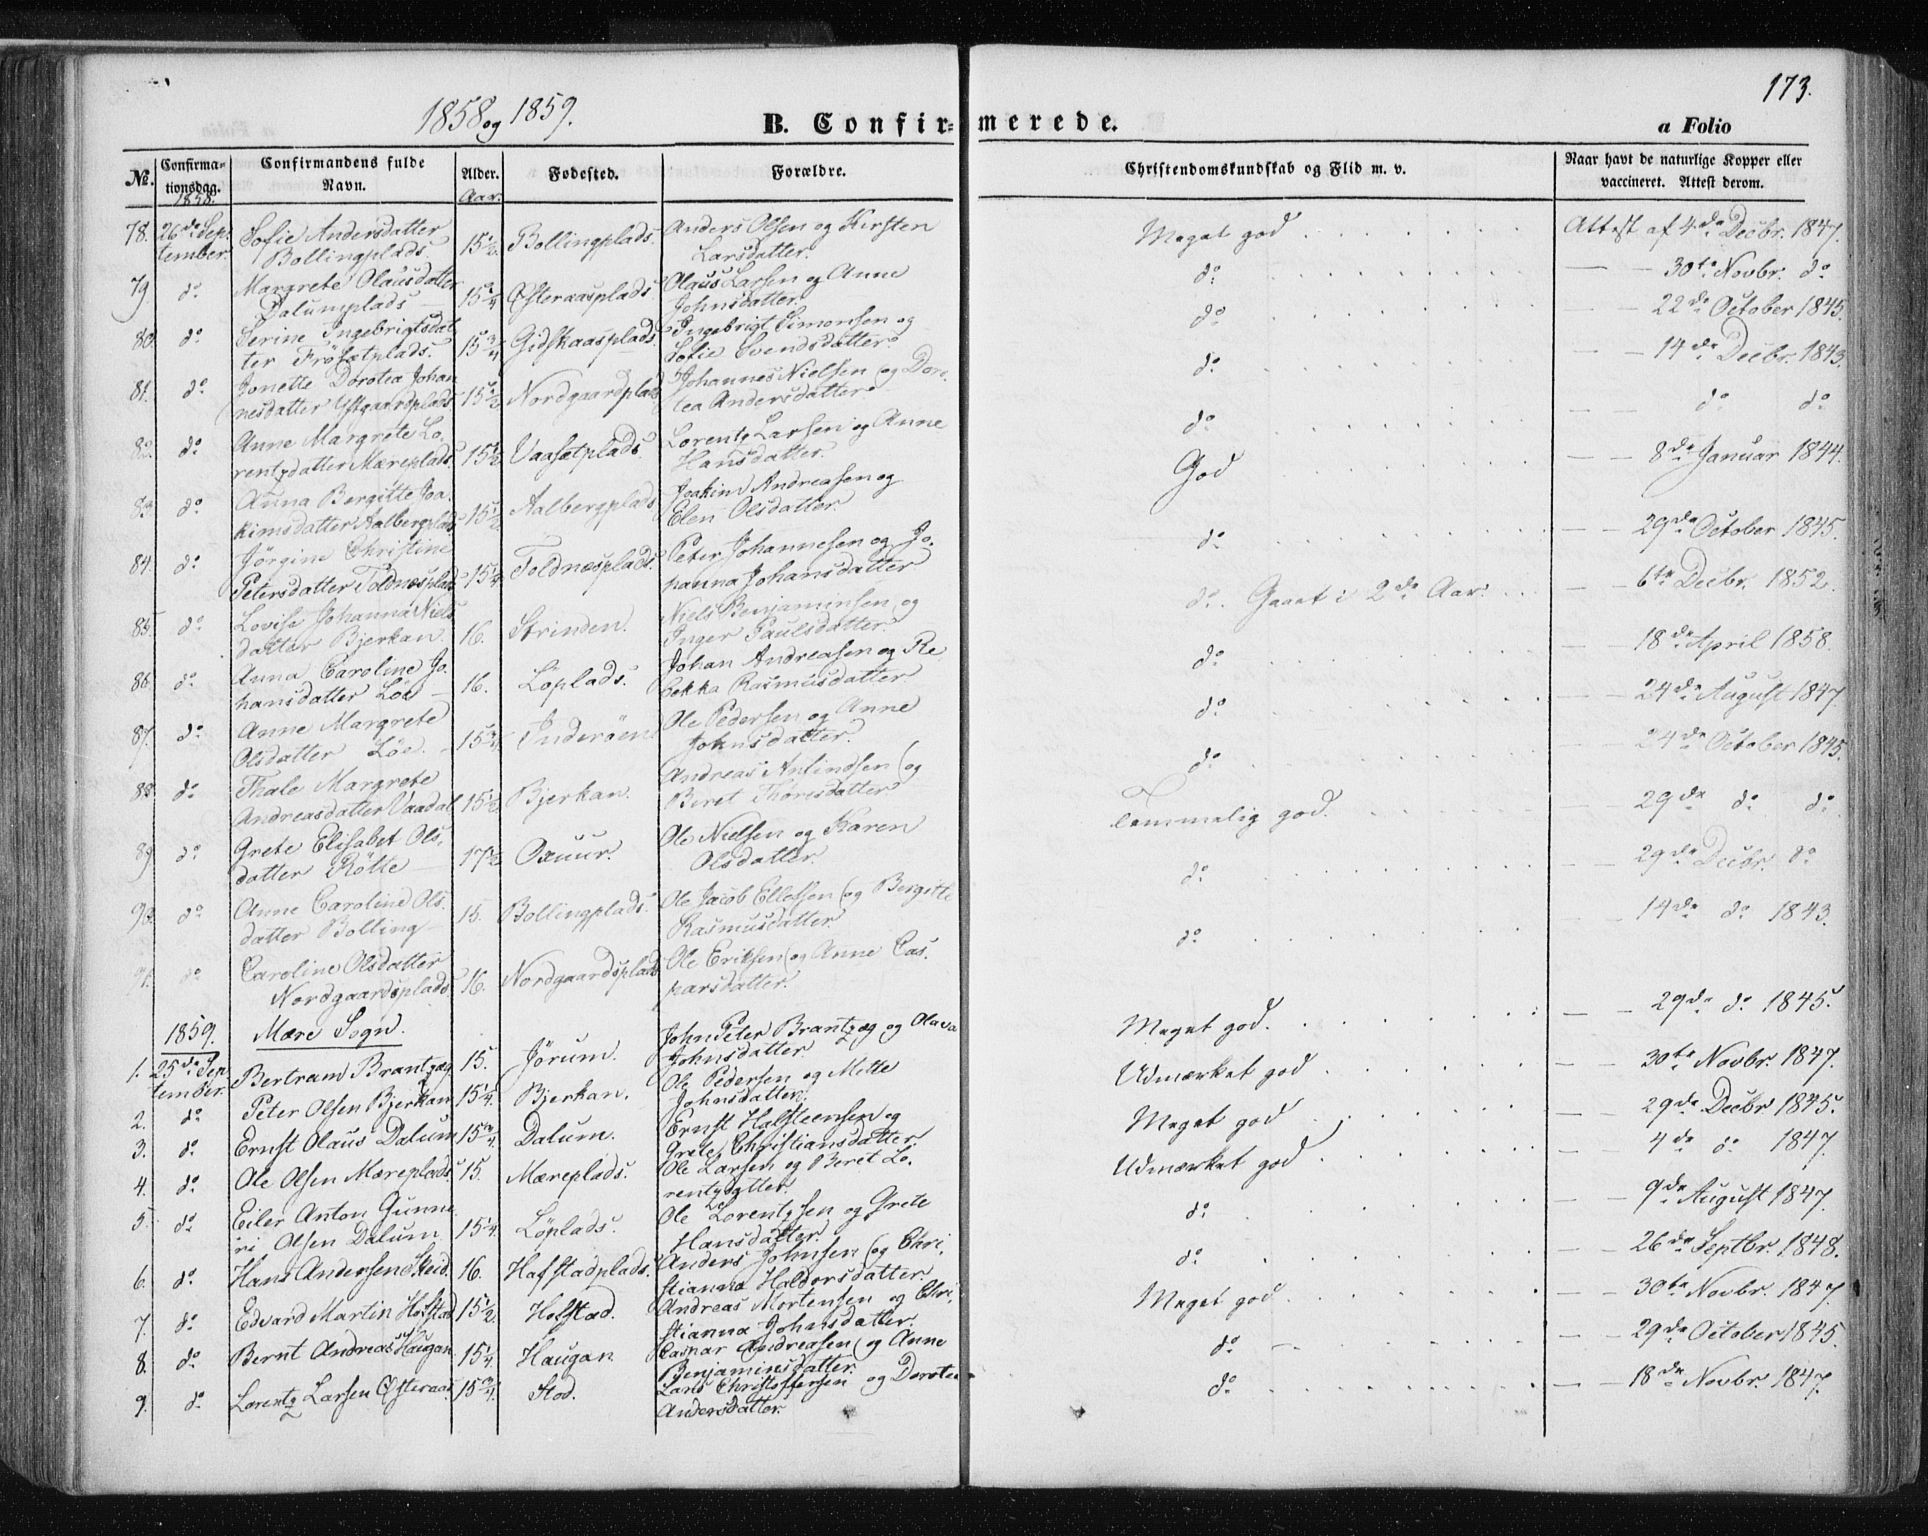 173.
1858 og 1859.
B. Confirmerede.
a Folio
№.
Confirmationsdag.
Confirmandens fulde Navn.
Alder.
Fødested.
Forældre.
Christendomskundskab og Flid m. v.
Naar havt de naturlige Kopper eller vaccineret. Attest derom.
1858.
Aar.
78. 26de Sep- Sofie Andersdatter 15½ Bollingplads. Anders Olsen og Kirsten Meget god Attest af 4de Decbr. 1847.
tember. Bollingplads Larsdatter.
79 do Margrete Olausdatter 15¾ Østeraasplads Olaus Larsen og Anne do — 30te Novbr. do
Dalumplads Johnsdatter.
80. do Serine Ingebrigtsdat- 15¾ Gidskaasplads. Ingebrigt Simonsen og do — — 22de October 1845.
ter Frösetplads. Sofie Svendsdatter
81. do Jonette Dorotea Johan- 15½ Nordgaardplads Johannes Nielsen og Doro- do — — 14de Decbr. 1843.
nesdatter Østgaardplads tea Andersdatter
82. do Anne Margrete Lo- 15½ Vaasetplads Lorentz Larsen og Anne do — — do do
rentzdatter Mæreplads. Hansdatter
83. do Anna Bergitte Joa- 15½ Aalbergplads Joakim Andreasen og God — — 8de Januar 1844.
kimsdatter Aalbergplads Elen Olsdatter.
84. do Jörgine Christine 15¼ Toldnæsplads. Peter Johannesen og Jo- do — — 29de October 1845.
Petersdatter Toldnæsplads hanna Johansdatter
85. do Lovise Johanna Niels- 16. Strinden. Niels Benjaminsen og do. Gaaet i 2de Aar. — 6te Decbr. 1852.
datter Bjerkan. Inger Paulsdatter
86. do Anna Caroline Jo- 16. Löplads. Johan Andreasen og Re- do — — 18de April 1858.
hansdatter Löe bekka Rasmusdatter
87. do Anne Margrete 15¾ Inderöen Ole Pedersen og Anne do — — 24de August 1847
Olsdatter Löe. Johnsdatter.
88. do Thale Margrete 15½ Bjerkan. Andreas Arlindsen og do — — 24de October 1845.
Andreasdatter Vaadal Beret Thoresdatter
89 do Grete Elisabet Ols- 17½ Oxuur. Ole Nielsen og Karen Temmelig god. — — 29de do do
datter Rötte Olsdatter.
90. do Anne Caroline Ols- 15. Bollingplads. Ole Jacob Ellefsen og Bergitte do — — 29de Decbr. do
datter Bolling Rasmusdatter
91. do Caroline Olsdatter 16. Nordgaardsplads Ole Eriksen og Anne Cas- do — — 14de do 1843.
Nordgaardsplads. parsdatter.
1859. Mære Sogn.
1. 25de Sep- Bertram Brantzæg 15. Jörum. John Peter Brantzæg og Olava Meget god. — — 29de do 1845.
tember. Johnsdatter
2. do Peter Olsen Bjerkan 15¼ Bjerkan. Ole Pedersen og Mette Udmærket god — — 30te Novbr. 1847.
Johnsdatter.
3. do Ernst Olaus Dalum 15¾ Dalum. Ernst Halsteensen og Meget god — — 29de Decbr 1845.
Grete Christiansdatter
4. do Ole Olsen Mæreplads 15. Mæreplads. Ole Larsen og Beret Lo- Udmærket god — — 4de do 1847.
rentzdatter.
5. do Eiler Anton Gunne- 15¼ Löplads. Ole Lorentzsen og Grete do — — 9de August 1847.
ri Olsen Dalum Hansdatter.
6. do Hans Andersen Skeid. 16. Hafstadplads. Anders Johnsen og Chri- do — — 26de Septbr. 1848.
stianna Haldorsdatter.
7. do Edvard Martin Hofstad 15½ Hofstad. Andreas Mortensen og Chri- Meget god — — 30te Novbr. 1847.
stianna Johansdatter.
8. do Bernt Andreas Haugan 15¼ Haugan Caspar Andreasen og Anne do — — 29de October 1845.
Benjaminsdatter.
9. do Lorentz Larsen Østeraas. 15¾ Stod. Lars Christoffersen og Dorotea do — — 18de Novbr. 1847.
Andersdatter.